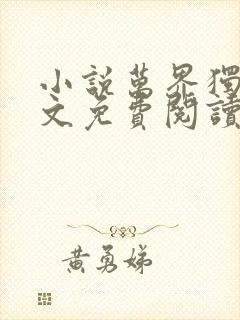 小說萬界獨
文免費閱讀
黃勇娣